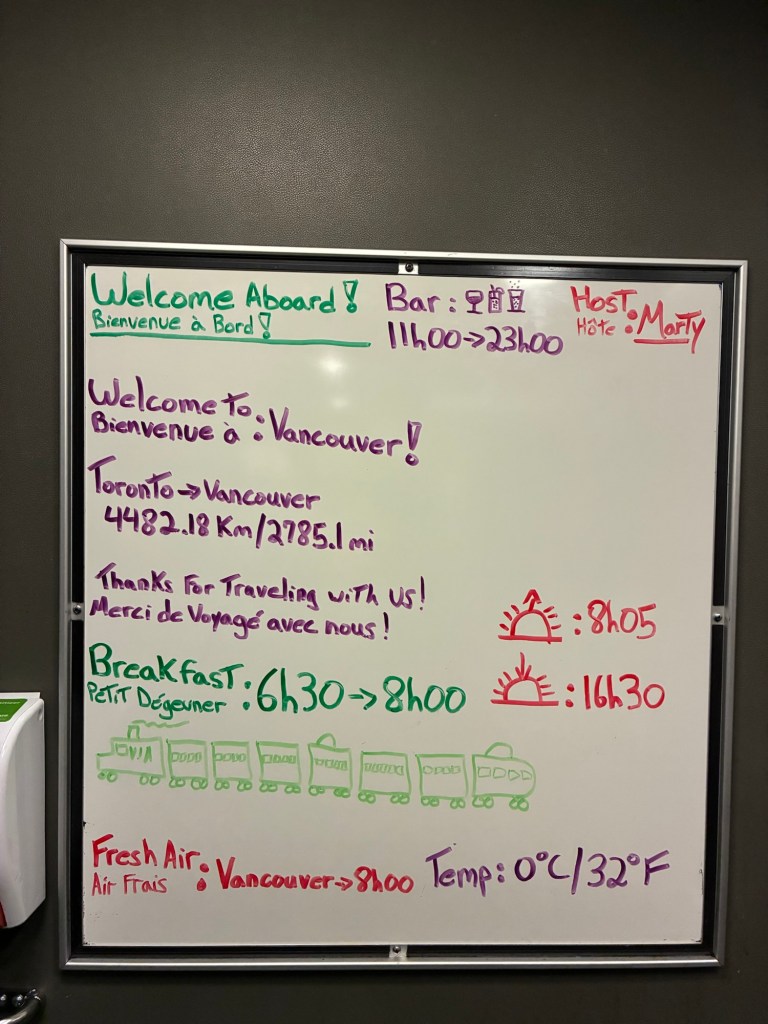 Welcome Aboard!
Bienvenue à Bord!
Bar:
11h00→23h00
Host:
Hôte
Marty
Welcome To:
Bienvenue à
Vancouver!
Toronto→Vancouver
4482.18 Km/2785.1 mi
Thanks For Traveling with us!
Merci de Voyagé avec nous!
:8h05
:16h30
Breakfast:
Petit Dégeuner
6h30→8h00
VIA
Fresh Air:
Air Frais
Vancouver→8h00
Temp: 0°C/32°F